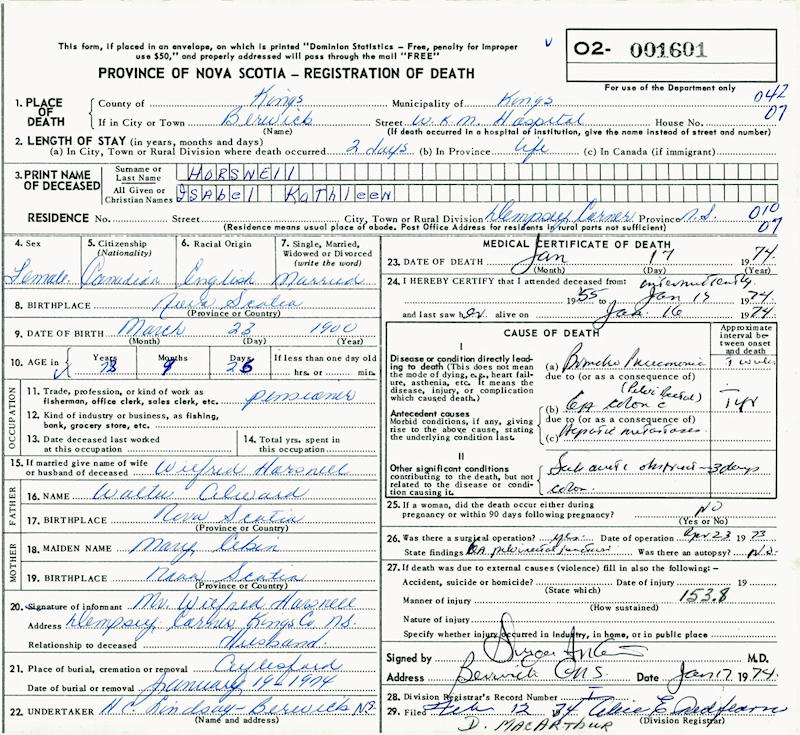 This form, if placed in an envelope, on which is printed "Dominion Statistics - Free, penalty for improper
use $50," and properly addressed will pass through the mail "FREE"
PROVINCE OF NOVA SCOTIA - REGISTRATION OF DEATH
O2- 001601
For use of the Department only
1. PLACE OF DEATH
County of Kings Municipality of Kings 042
If in City or Town Berwick Street W.K.M. Hospital House No. 07
(Name) (If death occurred in a hospital or institution, give the name instead of street and number)
2. LENGTH OF STAY (in years, months and days)
(a) In City, Town or Rural Division where death occurred 2 days (b) In Province life (c) In Canada (if immigrant)
3. PRINT NAME OF DECEASED
Surname or Last Name HORSNELL
All Given or Christian Names ISabel Kathleen
RESIDENCE No. Street City, Town or Rural Division Dempsey Corner Province N.S. 010
(Residence means usual place of abode. Post Office Address for residents in rural parts not sufficient) 07
4. Sex 5. Citizenship (Nationality) 6. Racial Origin 7. Single, Married, Widowed or Divorced (write the word)
Female Canadian English Married
8. BIRTHPLACE Nova Scotia
(Province or Country)
9. DATE OF BIRTH March 23 1900
(Month) (Day) (Year)
10. AGE in Years Months Days If less than one day old
hrs. or min.
OCCUPATION
11. Trade, profession, or kind of work as fisherman, office clerk, sales clerk, etc. pensioner
12. Kind of industry or business, as fishing, bank, grocery store, etc.
13. Date deceased last worked at this occupation
14. Total yrs. spent in this occupation
15. If married give name of wife or husband of deceased Wilfred Horsnell
FATHER
16. NAME Walter
17. BIRTHPLACE Nova Scotia
(Province or Country)
MOTHER
18. MAIDEN NAME Mary
19. BIRTHPLACE Nova Scotia
(Province or Country)
20. Signature of informant Mr. Wilfred Horsnell
Address Dempsey Corner Kings Co NS.
Relationship to deceased Husband
21. Place of burial, cremation or removal Aylesford
Date of burial or removal January 19th 1974
22. UNDERTAKER H.C. Lindsay - Berwick NS
(Name and address)
MEDICAL CERTIFICATE OF DEATH
23. DATE OF DEATH Jan 17 1974
(Month) (Day) (Year)
24. I HEREBY CERTIFY that I attended deceased from: intermittently
1955 to Jan 17 1974
and last saw her alive on Jan. 16 1974
CAUSE OF DEATH
Approximate interval between onset and death
I
Disease or condition directly leading to death (This does not mean the mode of dying, e.g., heart failure, asthenia, etc. It means the disease, injury, or complication which caused death.)
(a) Broncho Pneumonia
due to (or as a consequence of)
Antecedent causes
Morbid conditions, if any, giving rise to the above cause, stating the underlying condition last.
(b) CA colon 1 yr
due to (or as a consequence of)
(c) Hepatic metastases
II
Other significant conditions
contributing to the death, but not related to the disease or condition causing it.
Subacute obstruction 3 days
colon
25. If a woman, did the death occur either during pregnancy or within 90 days following pregnancy? NO
(Yes or No)
26. Was there a surgical operation? yes. Date of operation Apr 23 1973
State findings CA Was there an autopsy? No.
27. If death was due to external causes (violence) fill in also the following:-
Accident, suicide or homicide? Date of injury 19
(State which)
Manner of injury 153.8
(How sustained)
Nature of injury
Specify whether injury occurred in industry, in home, or in public place
Signed by M.D.
Address Berwick NS Date Jan 17 1974
28. Division Registrar's Record Number 1
29. Filed Feb 12 1974
(Division Registrar)
D. MACARTHUR